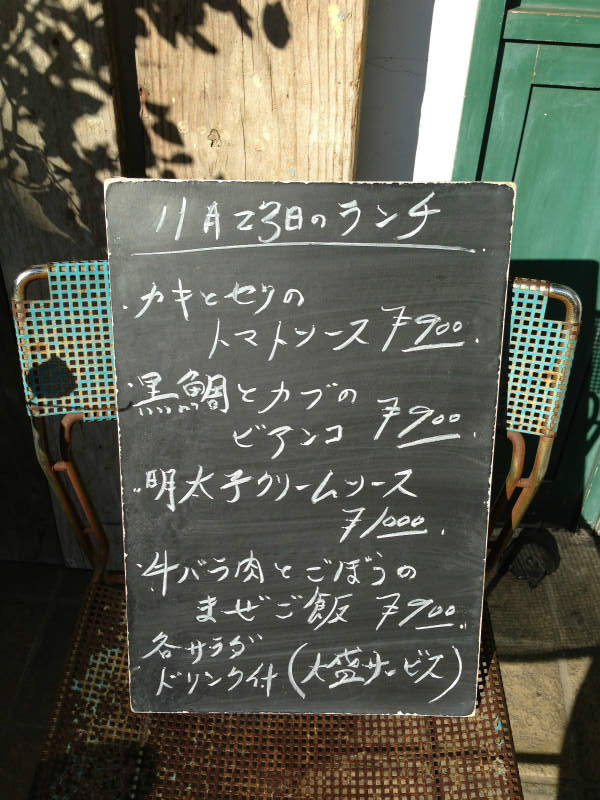 11月23日のランチ
カキとセリの
トマトソース ¥900.
黒鯛とカブの
ビアンコ ¥900.
明太子クリームソース
¥1000.
牛バラ肉とごぼうの
まぜご飯 ¥900.
各サラダ
ドリンク付(大盛サービス)